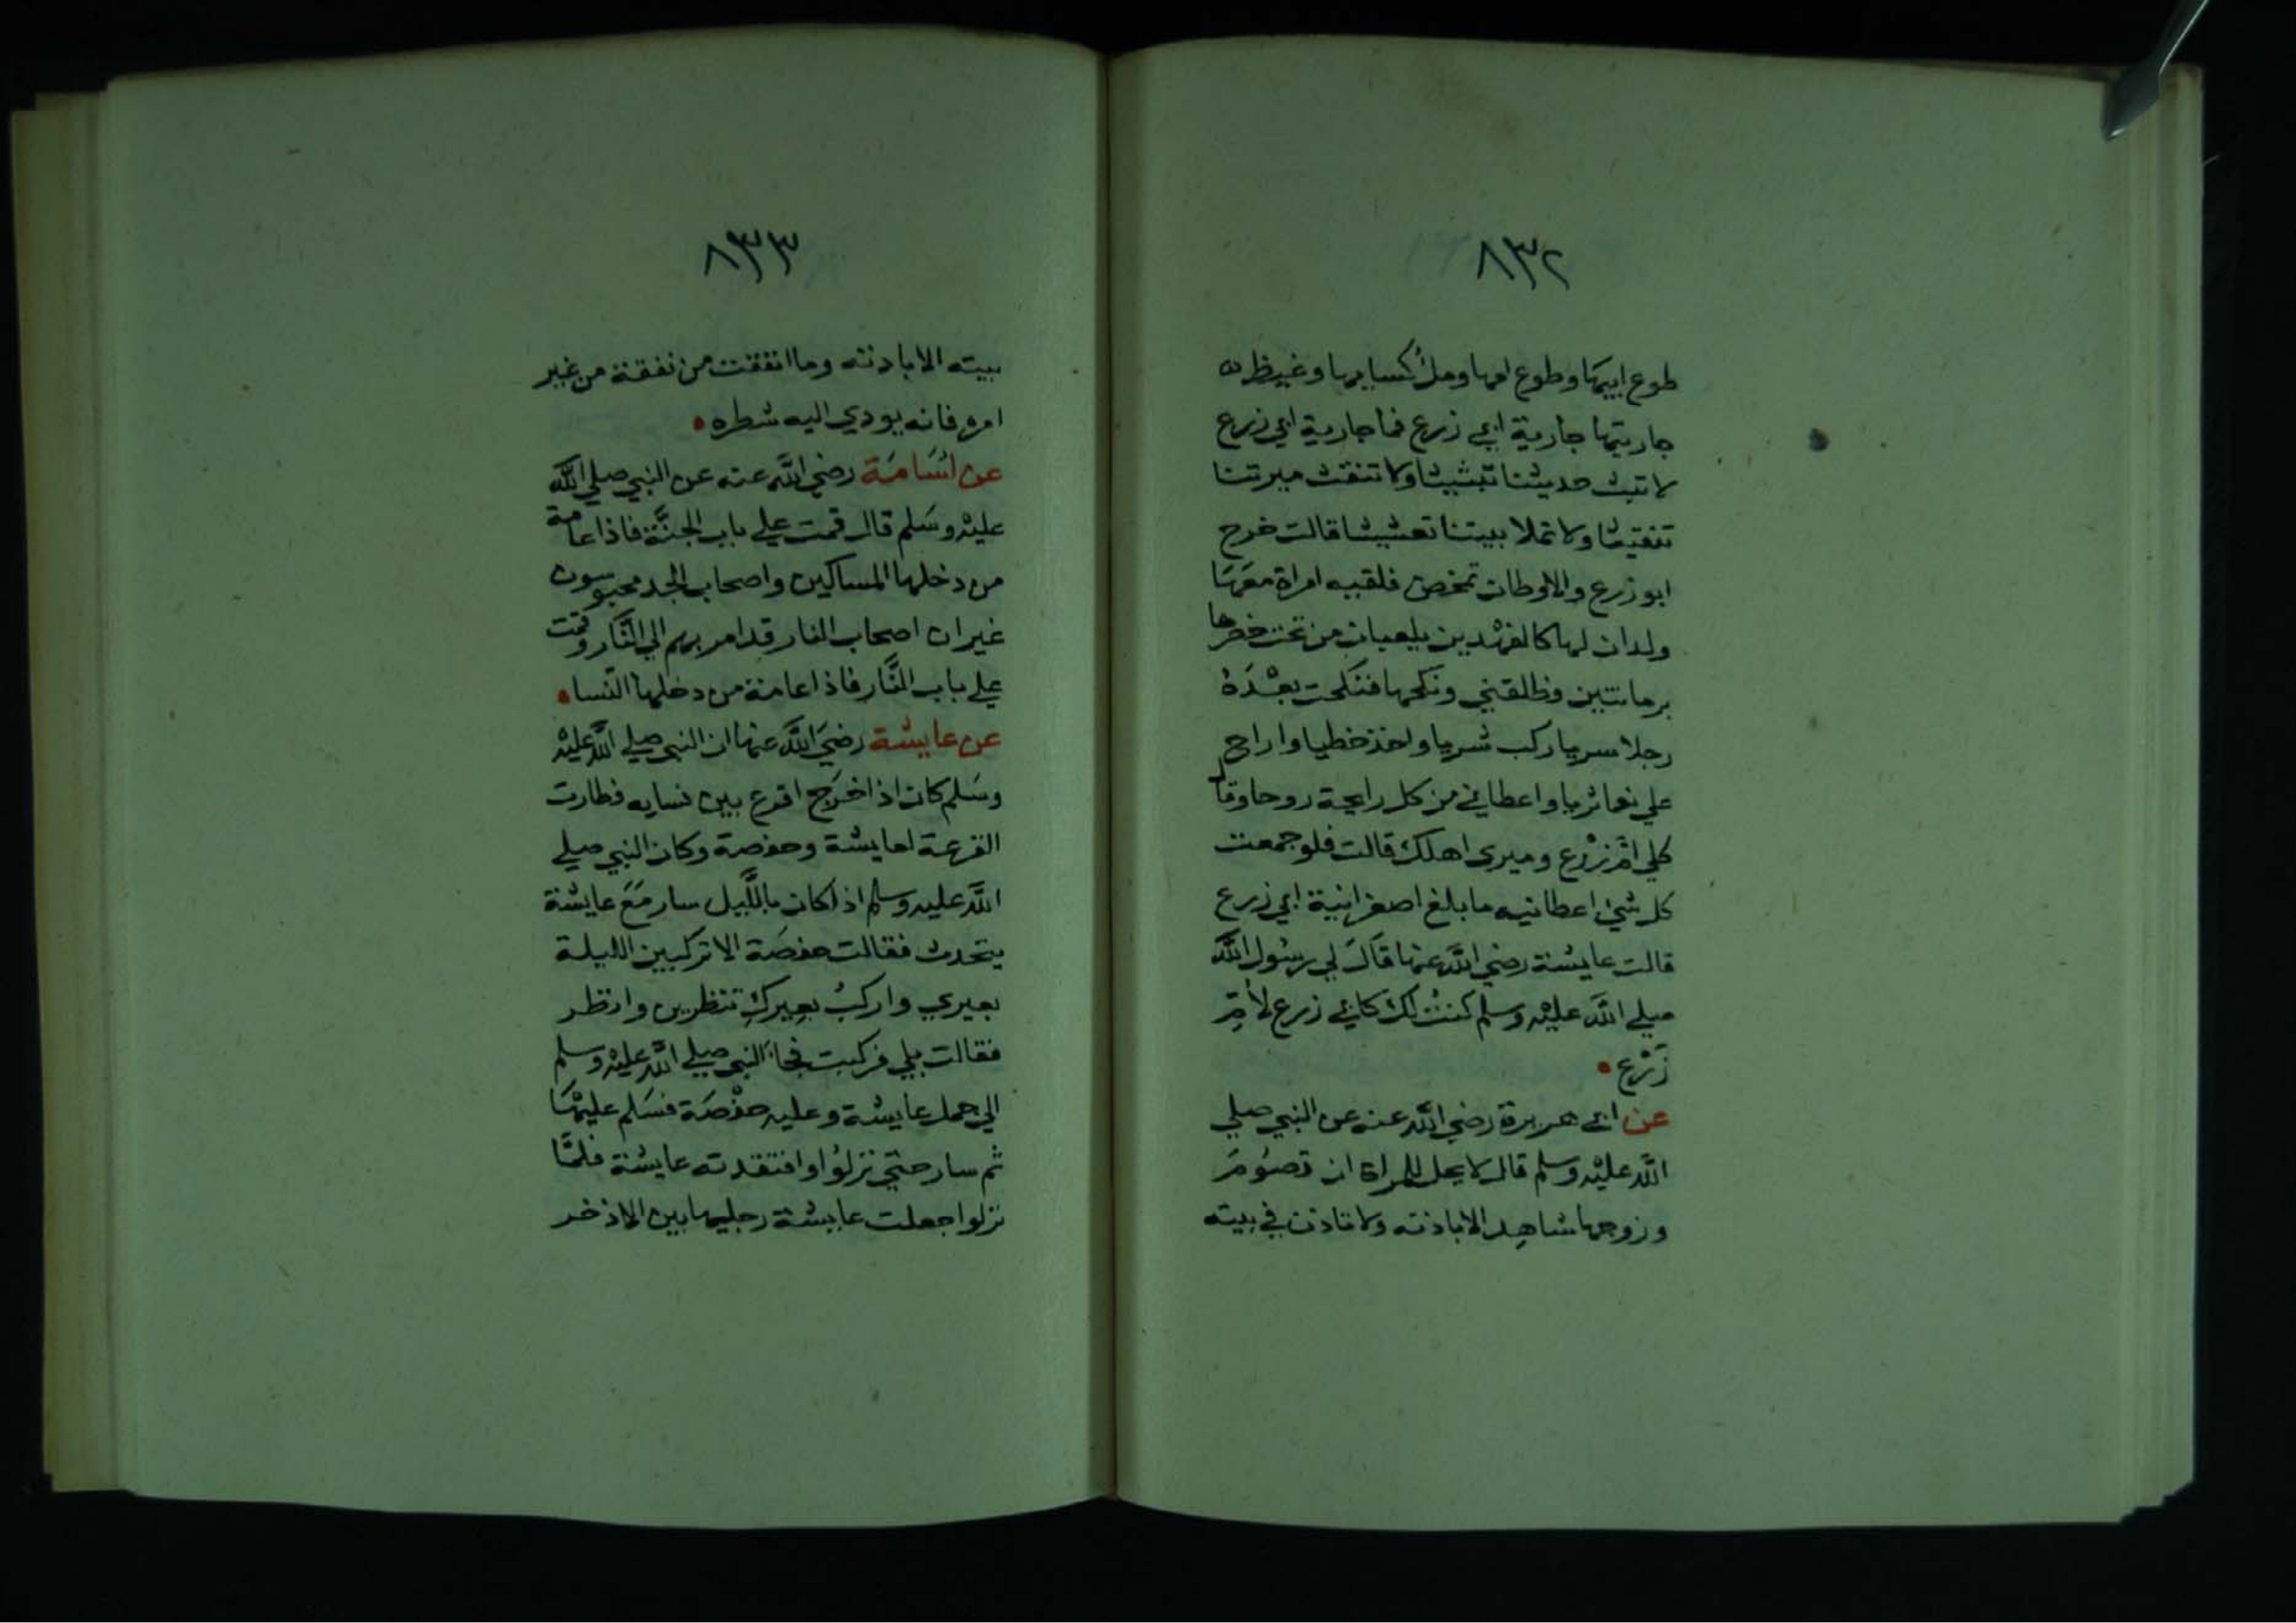 ٨٣٢
طوع ابيها وطوع امها وملؤ كسايها وغيظ
جاريتها جارية ابي زرع فما جارية ابي زرع
لا تبث حديثنا تبثيثا ولا تنقث ميرتنا
تنقيثا ولا تملا بيتنا تعشيشا قالت خرج
ابو زرع والاوطات تمخض فلقيه امراة معها
ولدان لها كالفهدين يلعبان من تحت خصرها
برمانتين فطلقني ونكحها فنكحت بعده
رجلا سريا ركب شريا واخذ خطيا واراح
علي نعما ثريا واعطاني من كل رايحة زوجا وقال
كلي ام زرع وميري اهلك قالت فلو جمعت
كل شئ اعطانيه ما بلغ اصغر انية ابي زرع
قالت عايشة رضي الله عنها قال لي رسول الله
صلي الله عليه وسلم كنت لك كابي زرع لام
زرع
عن ابي هريرة رضي الله عنه عن النبي صلي
الله عليه وسلم قال لا يحل للمراة ان تصوم
وزوجها شاهد الا باذنه ولا تاذن في بيته
٨٣٣
بيته الا باذنه وما انفقت من نفقة من غير
امره فانه يودي اليه شطره
عن اسامة رضي الله عنه عن النبي صلي الله
عليه وسلم قال قمت علي باب الجنة فاذا عامة
من دخلها المساكين واصحاب الجد محبوسون
غير ان اصحاب النار قد امر بهم الي النار وقمت
علي باب النار فاذا عامة من دخلها النسا
عن عايشة رضي الله عنها ان النبي صلي الله عليه
وسلم كان اذا خرج اقرع بين نسايه فطارت
القرعة لعايشة وحفصة وكان النبي صلي
الله عليه وسلم اذا كان بالليل سار مع عايشة
يتحدث فقالت حفصة الا تركبين الليلة
بعيري واركب بعيرك تنظرين وانظر
فقالت بلي فركبت فجا النبي صلي الله عليه وسلم
الي جمل عايشة وعليه حفصة فسلم عليها
ثم سار حتي نزلوا وافتقدته عايشة فلما
نزلوا جعلت عايشة رجليها بين الاذخر